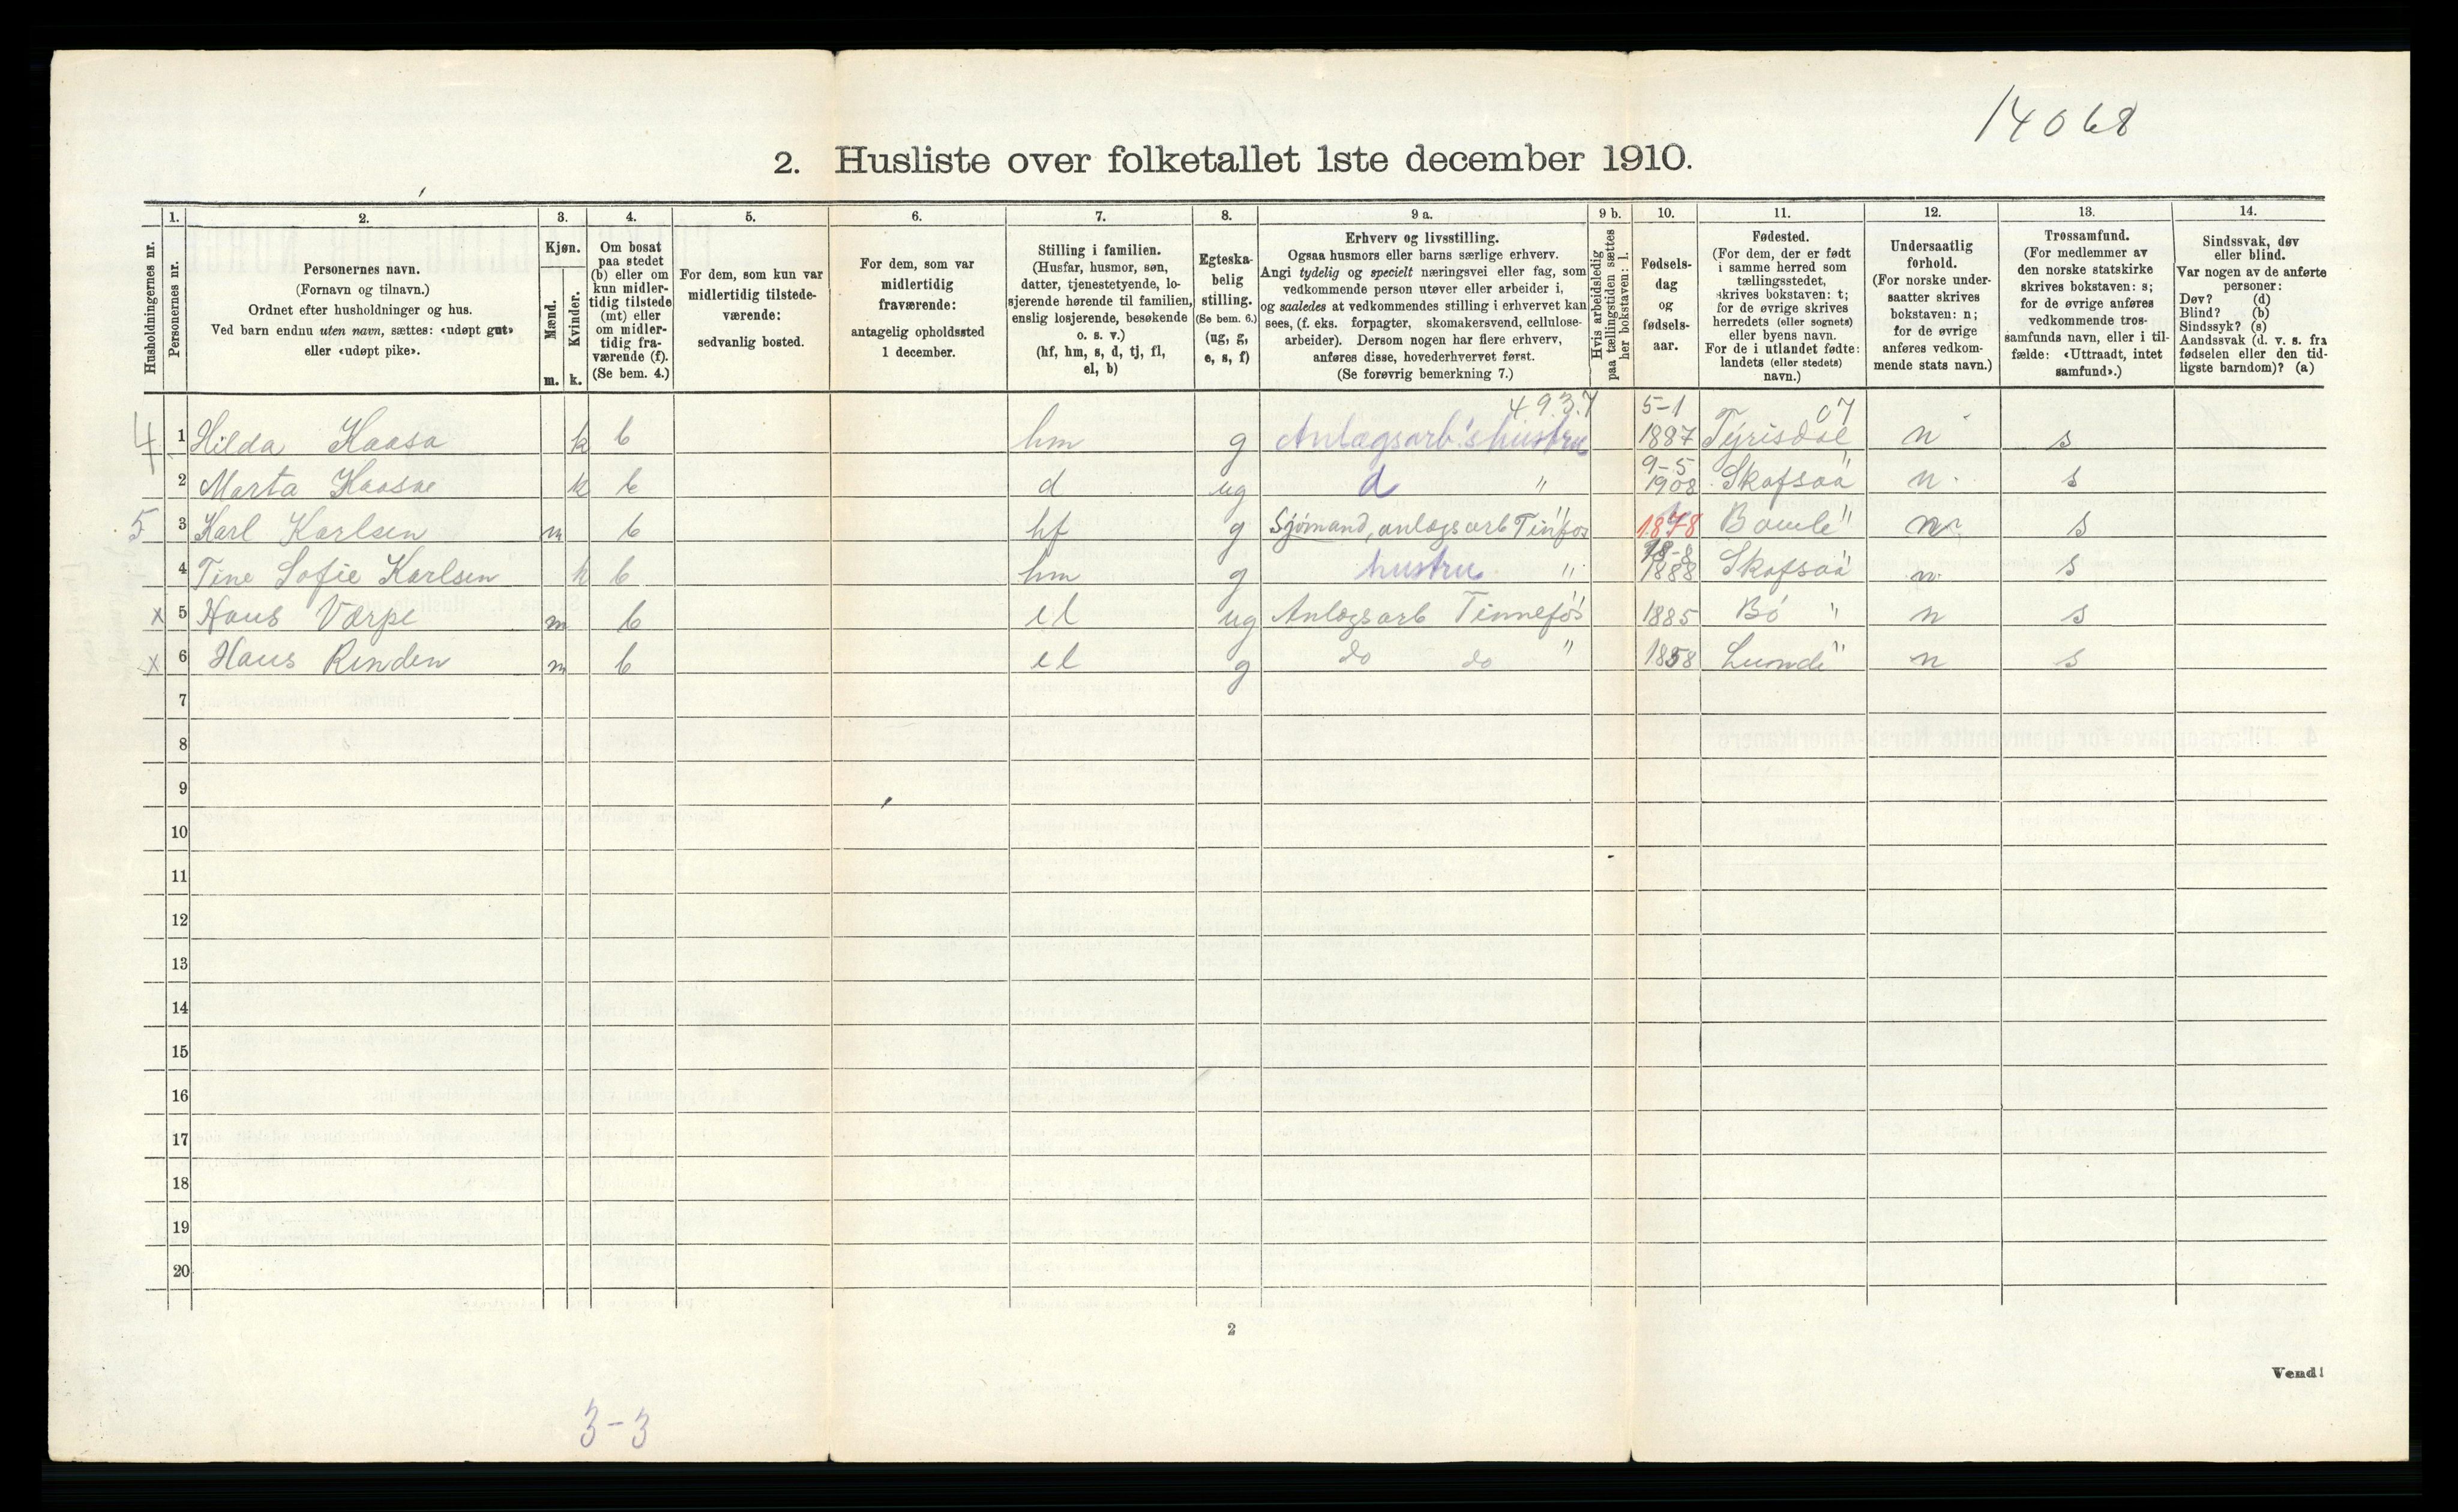 14068
2. Husliste over folketallet 1ste december 1910.
1. 2. 3. 4. 5. 6. 7. 8. 9 a. 9 b. 10. 11. 12. 13. 14.
Husholdningernes nr.
Personernes nr.
Personernes navn.
(Fornavn og tilnavn.)
Ordnet efter husholdninger og hus.
Ved barn endnu uten navn, sættes: «udøpt gut»
eller «udøpt pike».
Kjøn.
Mænd.
Kvinder.
m. k.
Om bosat
paa stedet
(b) eller om
kun midler-
tidig tilstede
(mt) eller
om midler-
tidig fra-
værende (f).
(Se bem. 4.)
For dem, som kun var
midlertidig tilstede-
værende:
sedvanlig bosted.
For dem, som var
midlertidig
fraværende:
antagelig opholdssted
1 december.
Stilling i familien.
(Husfar, husmor, søn,
datter, tjenestetyende, lo-
sjerende hørende til familien,
enslig losjerende, besøkende
o. s. v.)
(hf, hm, s, d, tj, fl,
el, b)
Egteska-
belig
stilling.
(Se bem. 6.)
(ug, g,
e, s, f)
Erhverv og livsstilling.
Ogsaa husmors eller barns særlige erhverv.
Angi tydelig og specielt næringsvei eller fag, som
vedkommende person utøver eller arbeider i,
og saaledes at vedkommendes stilling i erhvervet kan
sees, (f. eks. forpagter, skomakersvend, cellulose-
arbeider). Dersom nogen har flere erhverv,
anføres disse, hovederhvervet først.
(Se forøvrig bemerkning 7.)
Hvis arbeidsledig
paa tællingstiden sættes
her bokstaven: l.
Fødsels-
dag
og
fødsels-
aar.
Fødested.
(For dem, der er født
i samme herred som
tællingsstedet,
skrives bokstaven: t;
for de øvrige skrives
herredets (eller sognets)
eller byens navn.
For de i utlandet fødte:
landets (eller stedets)
navn.)
Undersaatlig
forhold.
(For norske under-
saatter skrives
bokstaven: n;
for de øvrige
anføres vedkom-
mende stats navn.)
Trossamfund.
(For medlemmer av
den norske statskirke
skrives bokstaven: s;
for de øvrige anføres
vedkommende tros-
samfunds navn, eller i til-
fælde: «Uttraadt, intet
samfund».)
Sindssvak, døv
eller blind.
Var nogen av de anførte
personer:
Døv? (d)
Blind? (b)
Sindssyk? (s)
Aandssvak (d. v. s. fra
fødselen eller den tid-
ligste barndom)? (a)
4937 5-1 07
4 1 Hilda Kaasa k b hm g Anlægsarb's hustru 1887 Tyrisdal n s
9-5
2 Marta Kaasa k b d ug d " 1908 Skafsaa " n s
5 3 Karl Karlsen m b hf g Sjømand, anlægsarb Tinfos 1878 Bamle " n s
-8
4 Tine Sofie Karlsen k b hm g hustru " 1888 Skafsaa n s
x 5 Hans Værpe m b el ug Anlægsarb Tinnefos 1885 Bø " n s
x 6 Hans Rinden m b el g do do " 1858 Lunde " n s
7
8
9
10
11
12
13
14
15
16
17
18
19
20
2
Vend!
3-3